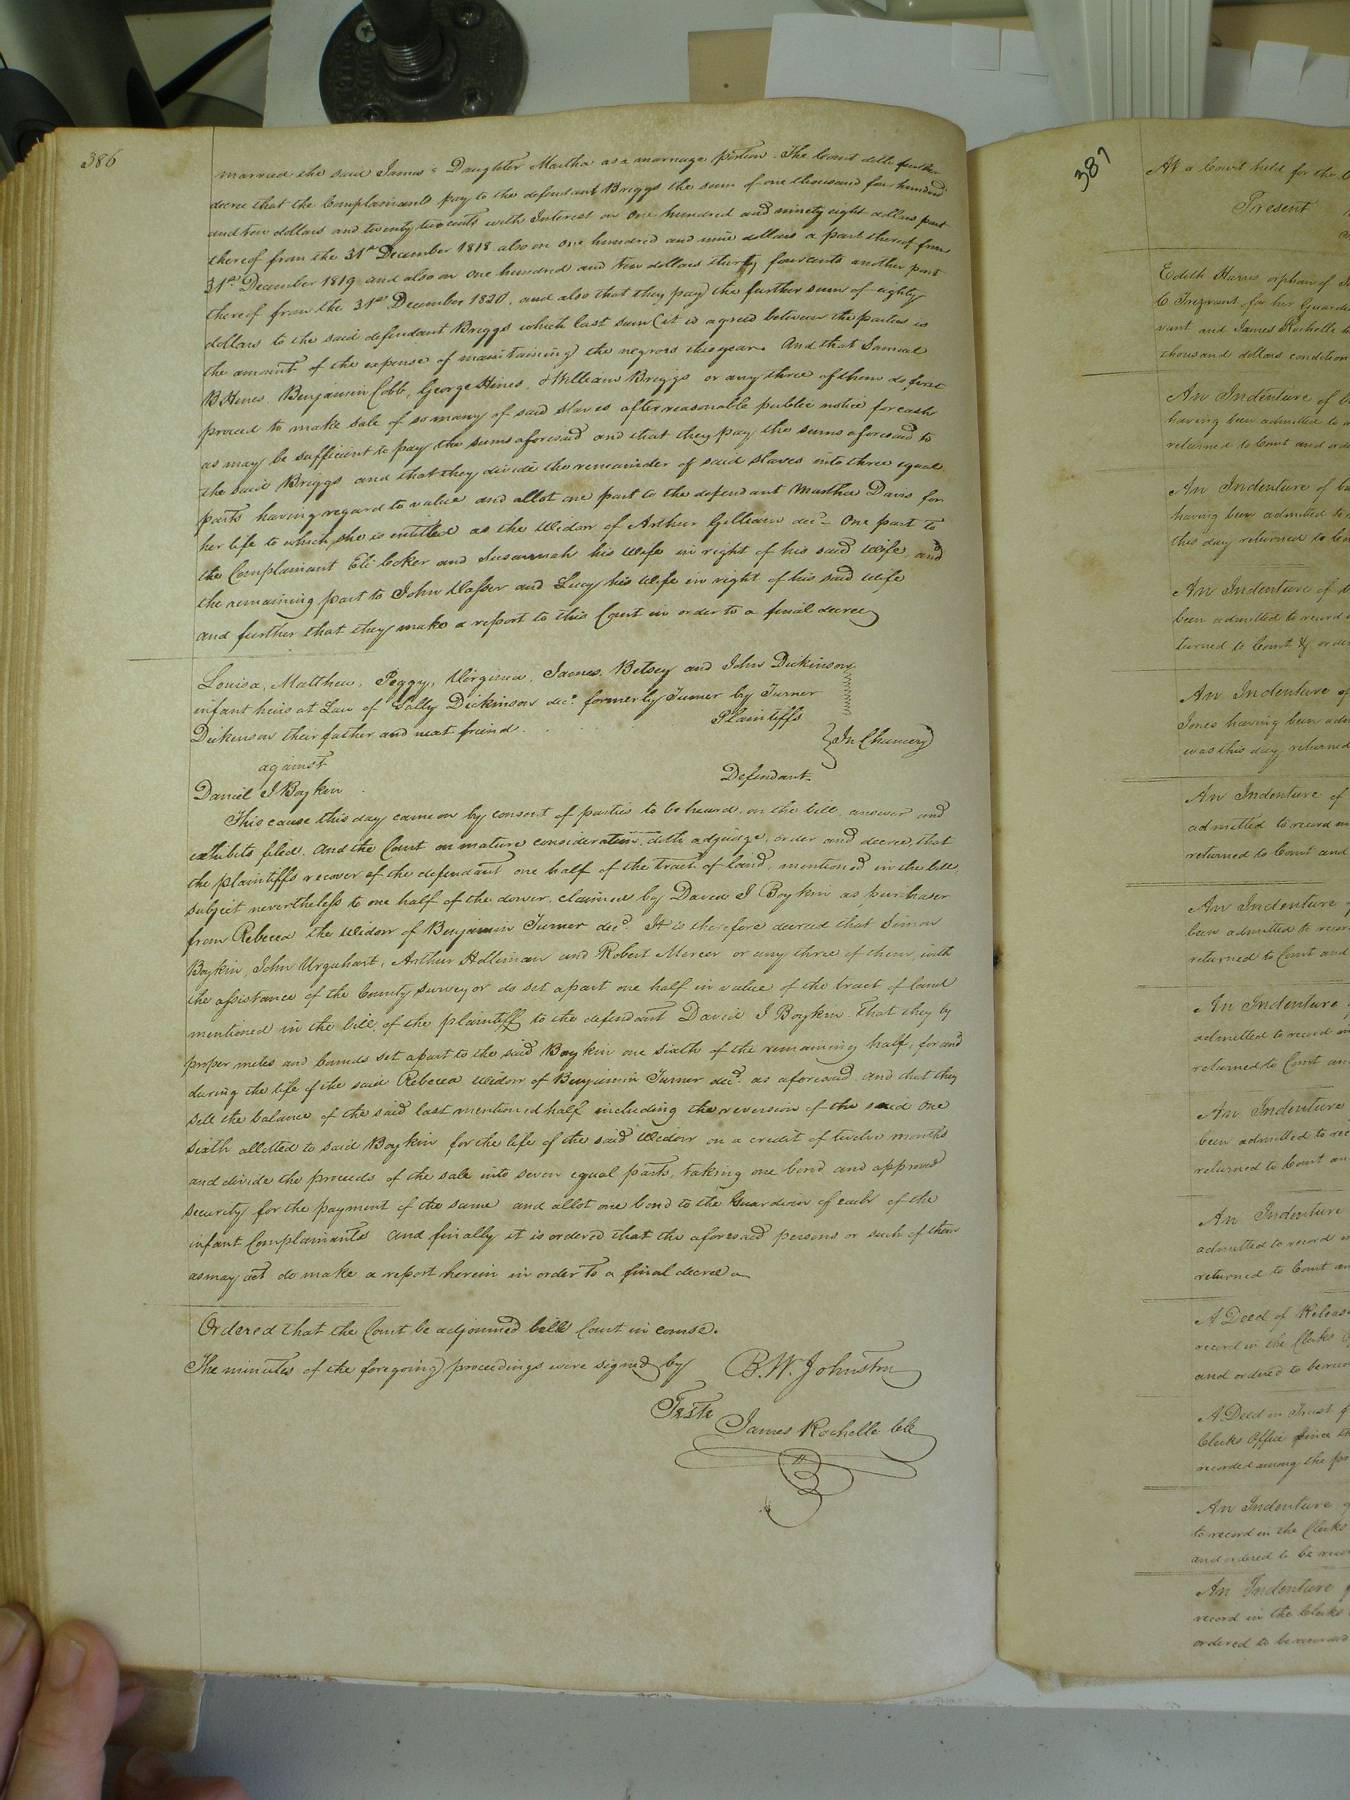 386
married the said James's Daughter Martha as a marriage portion. The Court doth further
decree that the Complainants pay to the defendant Briggs the sum of one thousand four hundred
and two dollars and twenty two cents with Interest on one hundred and ninety eight dollars part
thereof from the 31st December 1818 also on one hundred and nine dollars a part thereof from
31st December 1819 and also on one hundred and two dollars thirty four cents another part
thereof from the 31st December 1820, and also that they pay the further sum of eighty
dollars to the said defendant Briggs which last sum (it is agreed between the parties is
the amount of the expense of maintaining) the negroes this year. And that Samuel
B Hines, Benjamin Cobb, George Hines, & William Briggs or any three of them do first
proceed to make sale of so many of said slaves after reasonable public notice for cash
as may be sufficient to pay the sums aforesaid and that they pay the sums aforesaid to
the said Briggs and that they divide the remainder of said slaves into three equal
parts having regard to value and allot one part to the defendant Martha Davis for
her life to which she is intitled as the Widow of Arthur Gilliam decd - One part to
the Complainant Eli Coker and Susannah his Wife in right of his said Wife, and
the remaining part to John Vasser and Lucy his Wife in right of his said Wife
and further that they make a report to this Court in order to a final decree
Louisa, Matthew, Peggy, Virginia, James, Betsey and John Dickinson
infant heirs at Law of Sally Dickinson decd. formerly Turner by Turner
Dickinson their father and next friend. Plaintiffs
against } In Chancery
Daniel J Boykin Defendant
This cause this day came on by consent of parties to be heard, on the bill, answer and
exhibits filed. And the Court on mature consideration, doth adjudge, order and decree that
the plaintiffs recover of the defendant one half of the tract of land, mentioned in the bill,
subject nevertheless to one half of the dower, claimed by David J Boykin as purchaser
from Rebecca the Widow of Benjamin Turner decd. It is therefore decreed that Simon
Boykin, John Urquhart, Arthur Holliman and Robert Mercer or any three of them, with
the assistance of the County surveyor do set apart one half in value of the tract of land
mentioned in the bill, of the plaintiff to the defendant David J Boykin. That they by
proper metes and bounds set apart to the said Boykin one sixth of the remaining half, for and
during the life of the said Rebecca widow of Benjamin Turner decd. as aforesaid, and that they
sell the balance of the said last mentioned half including the reversion of the said one
sixth allotted to said Boykin for the life of the said Widow on a credit of twelve months
and divide the proceeds of the sale into seven equal parts, taking one bond and approved
security for the payment of the same and allot one bond to the Guardian of each of the
infant Complainants and finally it is ordered that the aforesaid persons or such of them
as may act do make a report herein in order to a final decree
Ordered that the Court be adjourned till Court in course.
The minutes of the foregoing proceedings were signed by B. W. Johnston
Teste
James Rochelle clk
387
At a Court held for the C
Present
Edith Harris orphan of
C Trezvant for her Guardi
vant and James Rochelle
thousand dollars condition
An Indenture of b
having been admitted to
returned to Court and ord
An Indenture of ba
having been admitted to
this day returned to Cou
An Indenture of
been admitted to record
turned to Court & orde
An Indenture of
Jones having been adm
was this day returned
An Indenture of
admitted to record in
returned to Court and
An Indenture
been admitted to recor
returned to Court and
An Indenture
admitted to record in
returned to Court an
An Indenture
been admitted to rec
returned to Court an
An Indenture
admitted to record
returned to Court an
A Deed of Release
record in the Clerks
and ordered to be
A Deed in Trust
Clerks Office since th
recorded among the
An Indenture
to record in the Clerks
and ordered to be
An Indenture
record in the Clerks
ordered to be